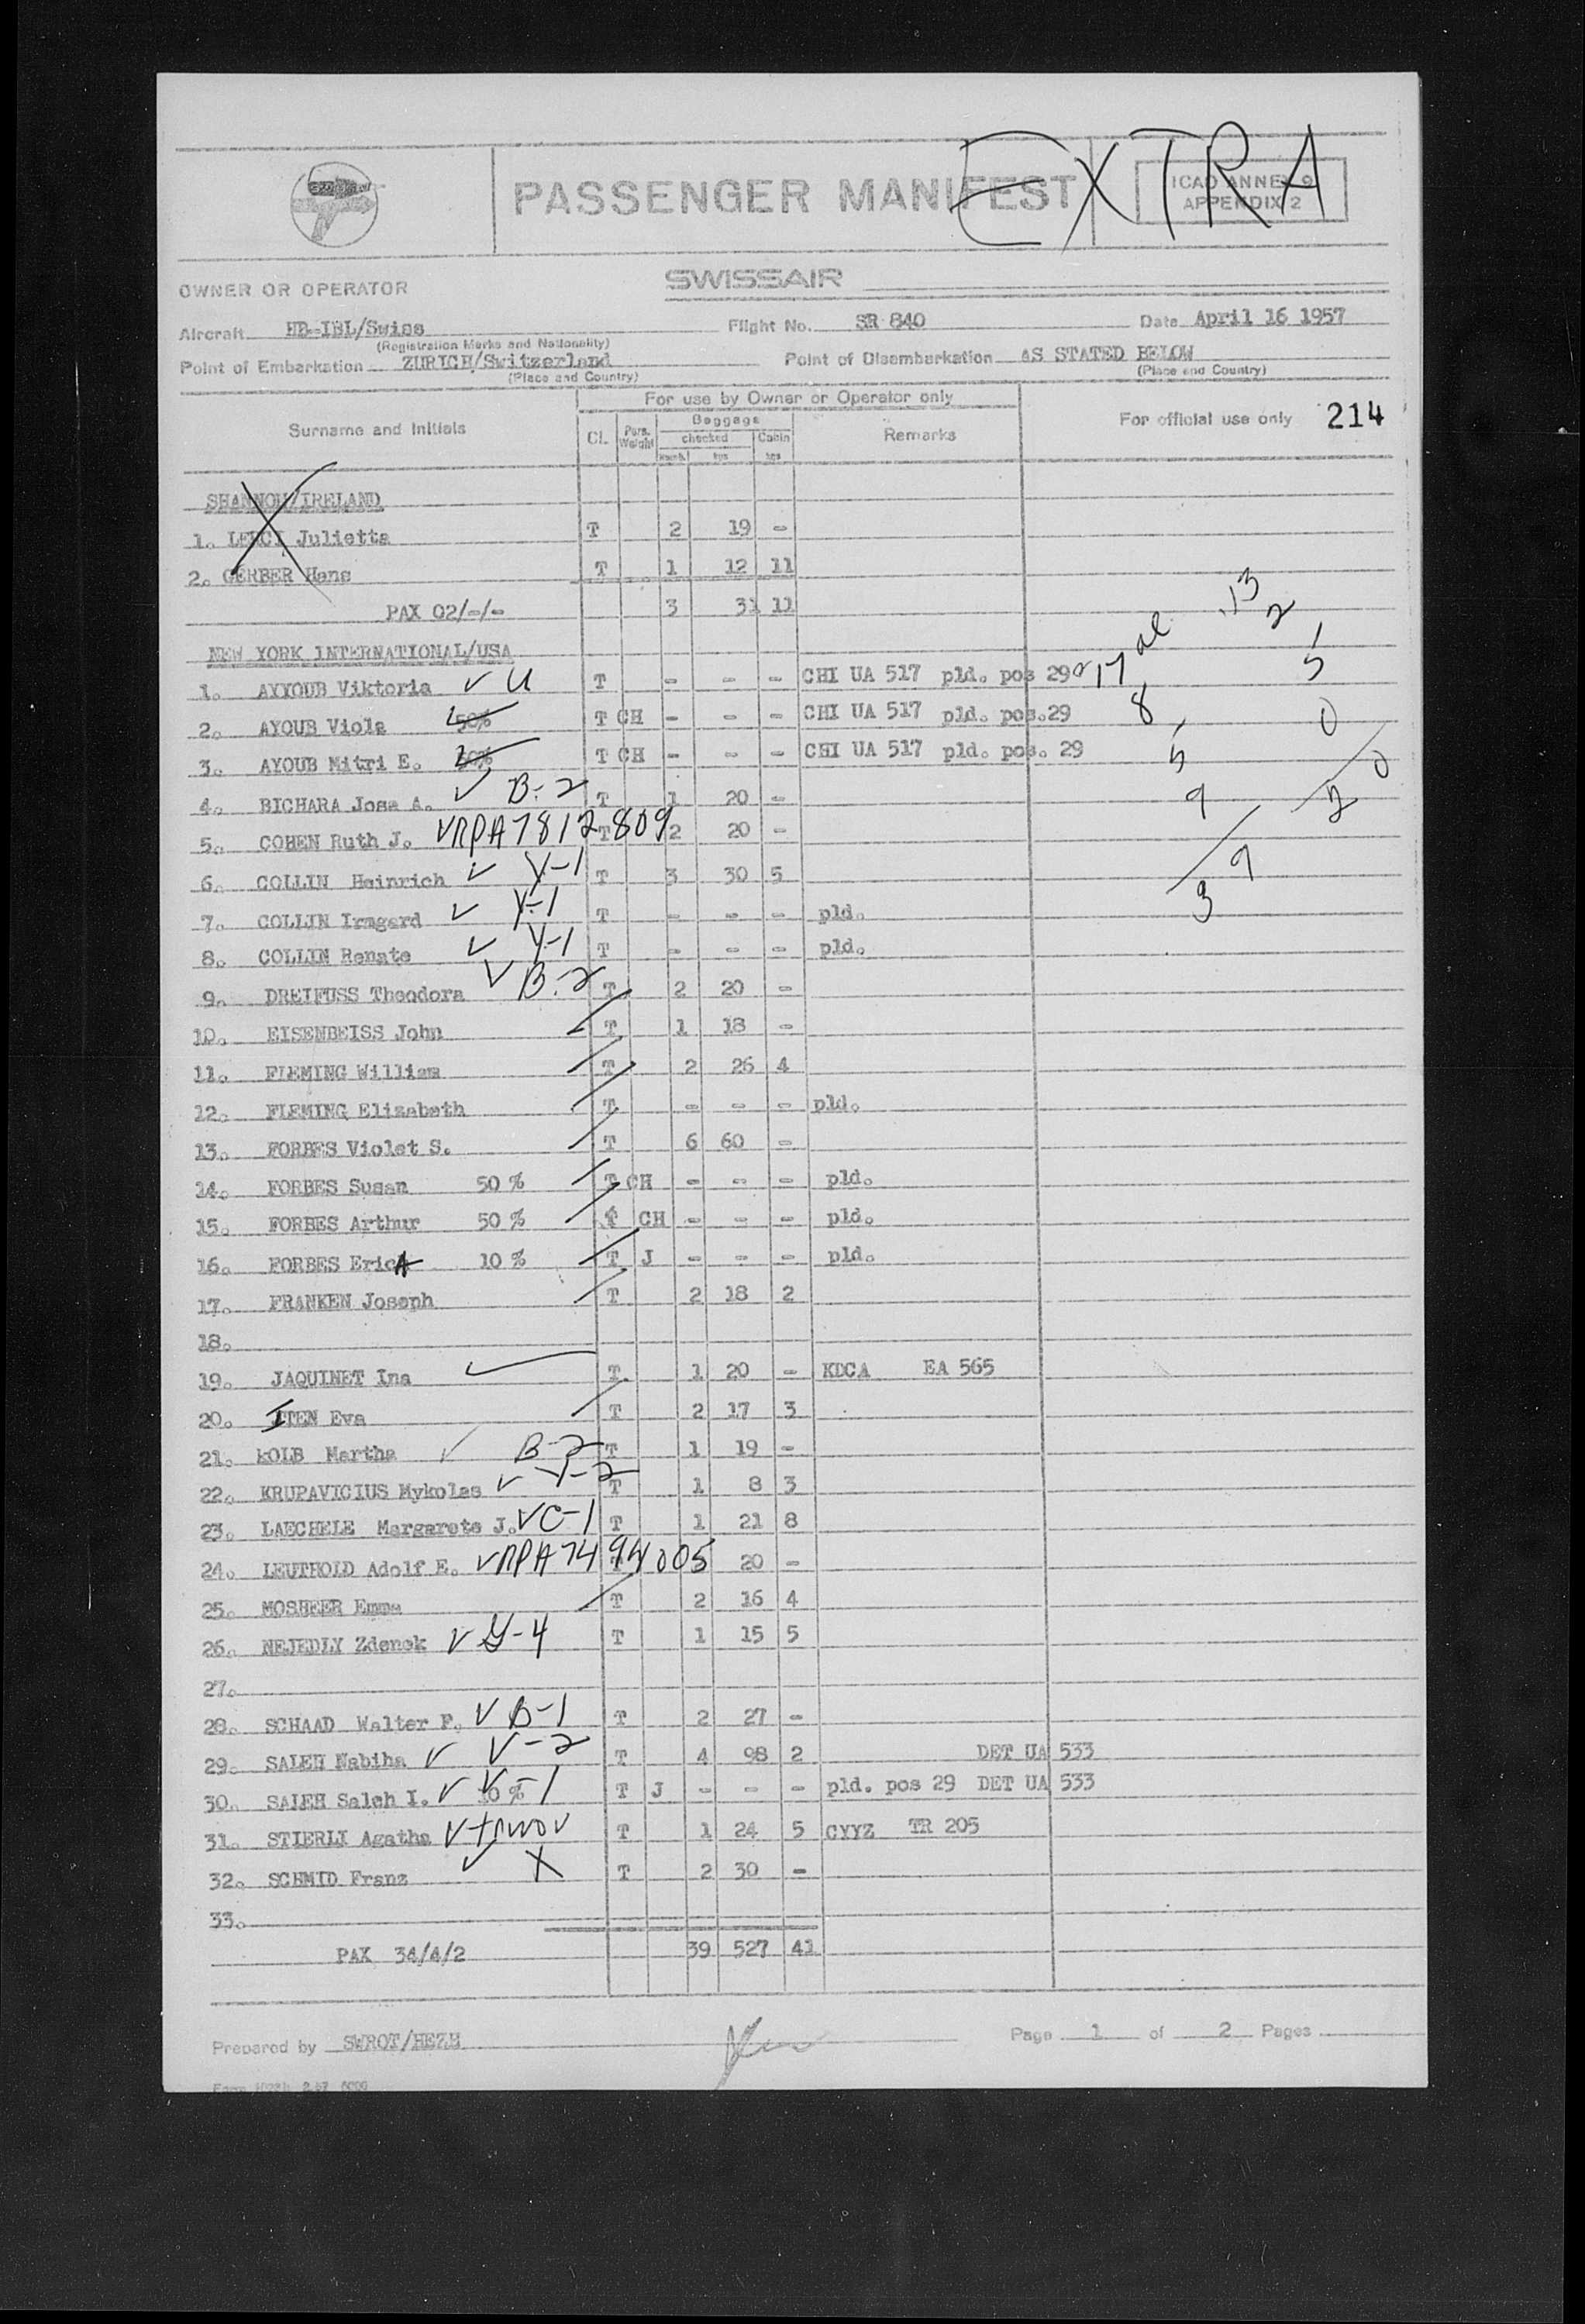 EXTRA
PASSENGER MANIFEST
ICAO ANNEX 9
APPENDIX 2
OWNER OR OPERATOR SWISSAIR
Aircraft HB-IBL/Swiss Flight No. SR 840 Date April 16 1957
(Registration Marks and Nationality)
Point of Embarkation ZURICH/Switzerland Point of Disembarkation AS STATED BELOW
(Place and Country) (Place and Country)
For use by Owner or Operator only
Surname and Initials Cl. Pers. Weight Baggage checked Cabin Remarks For official use only 214
Numb. kgs kgs
SHANNON/IRELAND
1. Julietta T 2 19 -
2. GERBER Hans T 1 12 11
PAX 02/-/- 3 31 11
NEW YORK INTERNATIONAL/USA
1. AYYOUB Viktoria ✓ U T - - - CHI UA 517 pld. pos 29
2. AYOUB Viola 50% T CH - - - CHI UA 517 pld. pos.29
3. AYOUB Mitri E. 50% T CH - - - CHI UA 517 pld. pos. 29
4. BICHARA Jose A. ✓ B-2 T 1 20 -
5. COHEN Ruth J. ✓ RPA 7812809 T 2 20 -
6. COLLIN Heinrich ✓ Y-1 T 3 30 5
7. COLLIN Irmgard ✓ Y-1 T - - - pld.
8. COLLIN Renate ✓ Y-1 T - - - pld.
9. DREIFUSS Theodora ✓ B-2 T 2 20 -
10. EISENBEISS John T 1 18 -
11. FLEMING William T 2 26 4
12. FLEMING Elizabeth T - - - pld.
13. FORBES Violet S. T 6 60 -
14. FORBES Susan 50 % T CH - - - pld.
15. FORBES Arthur 50 % T CH - - - pld.
16. FORBES EricA 10 % T J - - - pld.
17. FRANKEN Joseph T 2 18 2
18.
19. JAQUINET Ina ✓ T 1 20 - KDCA EA 565
20. ITEN Eva T 2 17 3
21. KOLB Martha ✓ B-2 T 1 19 -
22. KRUPAVICIUS Mykolas ✓ Y-2 T 1 8 3
23. LAECHELE Margarete J. ✓ C-1 T 1 21 8
24. LEUTHOLD Adolf E. ✓ RPA 7494005 20 -
25. MOSHEER Emma T 2 16 4
26. NEJEDLY Zdenek ✓ Y-4 T 1 15 5
27.
28. SCHAAD Walter F. ✓ B-1 T 2 27 -
29. SALEH Nabiha ✓ V-2 T 4 98 2 DET UA 533
30. SALEH Saleh I. ✓ V-1 10 % T J - - - pld. pos 29 DET UA 533
31. STIERLI Agatha ✓ T 1 24 5 CYYZ TR 205
32. SCHMID Franz ✓ X T 2 30 -
33.
PAX 34/4/2 39 527 41
17
8
5
9
39
13
2
5
0
20
Prepared by SWROT/HEZH Page 1 of 2 Pages